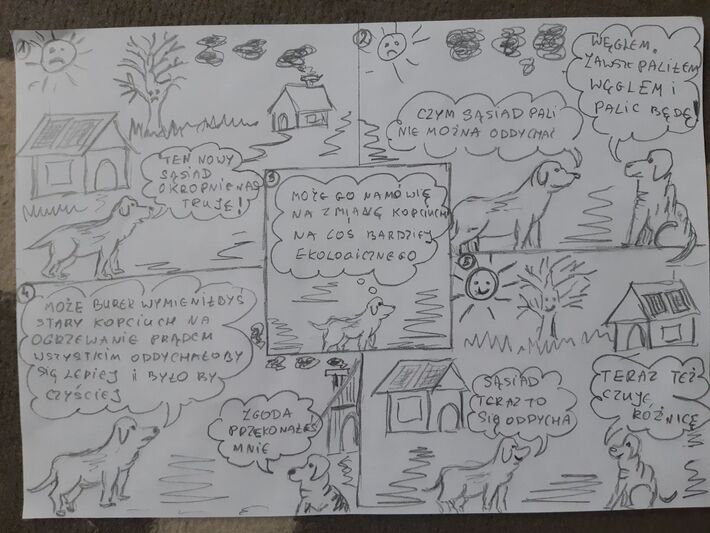 1
TEN NOWY
SĄSIAD
OKROPNIE NAS
TRUJE!
2
CZYM SĄSIAD PALI
NIE MOŻNA ODDYCHAĆ
WĘGLEM.
ZAWSZE PALIŁEM
WĘGLEM I
PALIĆ BĘDĘ
3
MOŻE GO NAMÓWIĘ
NA ZMIANĘ KOPCIUCH
NA COŚ BARDZIEJ
EKOLOGICZNEGO
4
MOŻE BUREK WYMIENIŁBYŚ
STARY KOPCIUCH NA
OGRZEWANIE PRĄDEM
WSZYSTKIM ODDYCHAŁOBY
SIĘ LEPIEJ I BYŁO BY
CZYŚCIEJ
ZGODA
PRZEKONAŁEŚ
MNIE
5
SĄSIAD
TERAZ TO
SIĘ ODDYCHA
TERAZ TEŻ
CZUJĘ
RÓŻNICĘ